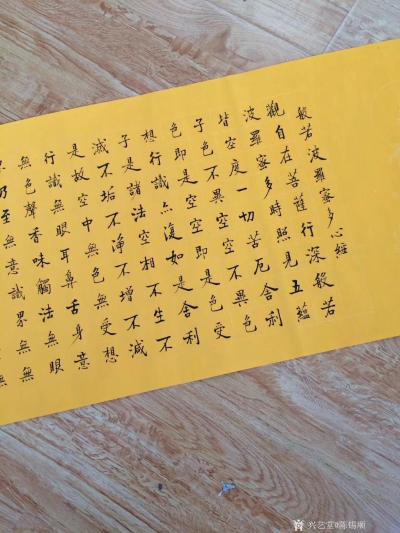 般若波羅蜜多心經
觀自在菩薩行深般若
波羅蜜多時照見五蘊
皆空度一切苦厄舍利
子色不異空空不異色
色即是空空即是色受
想行識亦復如是舍利
子是諸法空相不生不
滅不垢不淨不增不減
是故空中無色無受想
行識無眼耳鼻舌身意
無色聲香味觸法無眼
乃至無意識界無無
兴艺堂@陈锡顺